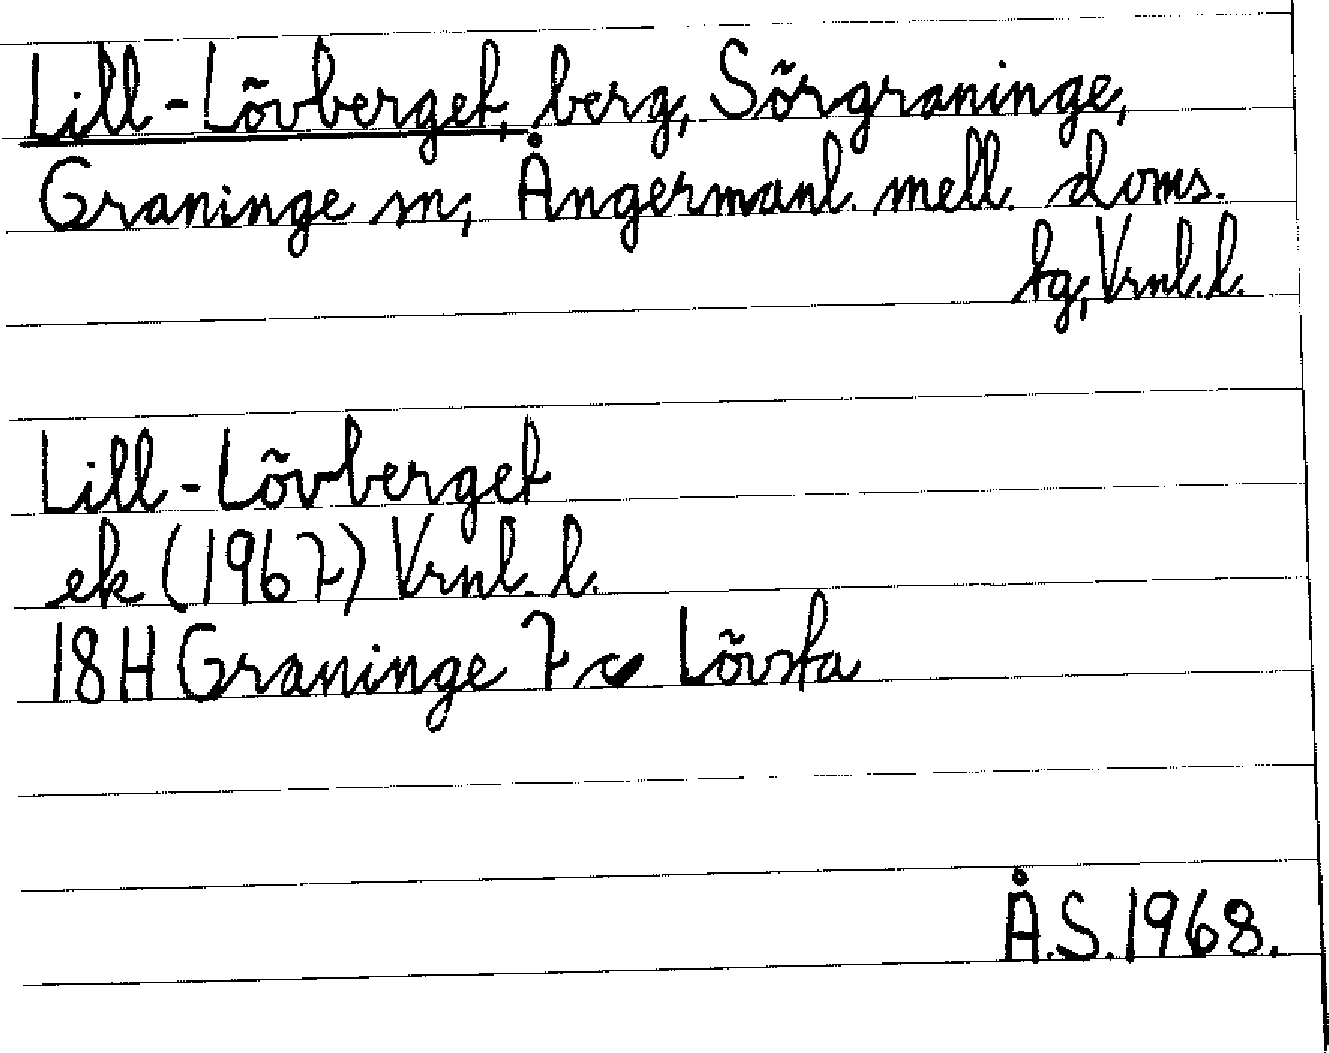 Lill-Lövberget, berg, Sörgraninge,
Graninge sn, Ångermanl. mell. doms.
tg, Vrnl.l.
Lill-Lövberget
ek (1967) Vrnl. l.
18H Graninge 7 c Lövsta
Å.S. 1968.